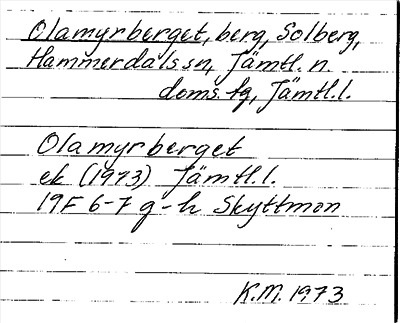 Olamyrberget, berg, Solberg,
Hammerdals sn, Jämtl. n.
doms. tg, Jämtl. l.
Olamyrberget
ek (1973) Jämtl. l.
19F 6-7 g-h Skyttmon
K.M. 1973